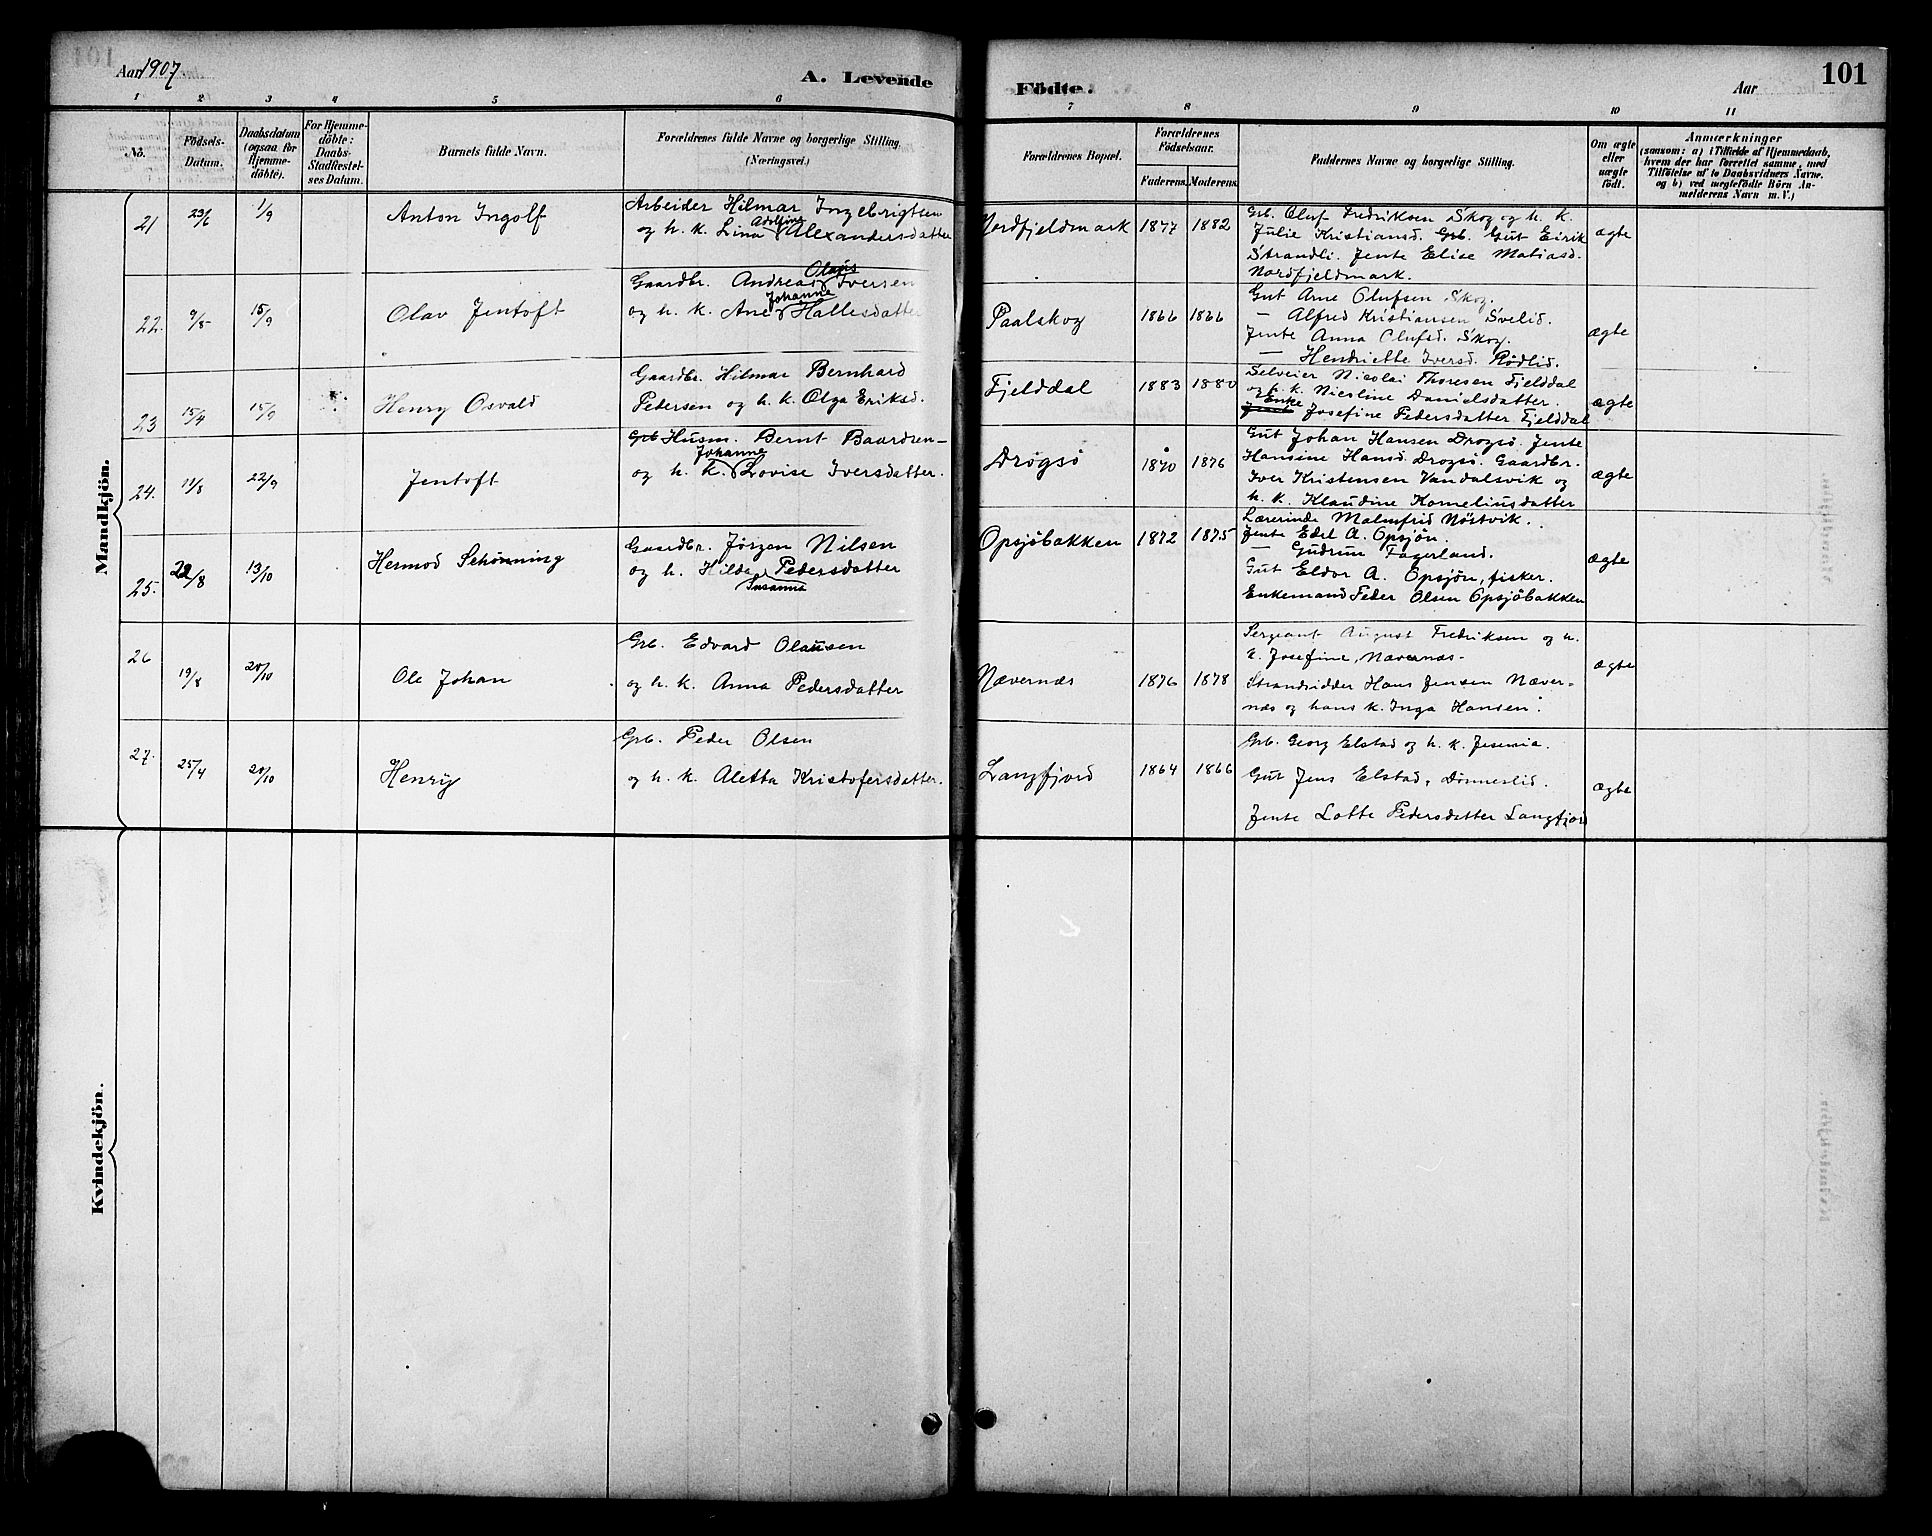 Aar 1907.
A. Levende
Födte.
Aar
101
1 2 3 4 5 6 7 8 9 10 11
No.
Födsels-
Datum.
Daabsdatum
(ogsaa for
Hjemme-
döbte).
For Hjemme-
döbte:
Daabs-
Stadfæstel-
ses Datum.
Barnets fulde Navn.
Forældrenes fulde Navne og borgerlige Stilling.
(Næringsvei.)
Forældrenes Bopæl.
Forældrenes
Födselsaar.
Faderens. Moderens.
Faddernes Navne og borgerlige Stilling.
Om ægte
eller
uægte
födt.
Anmærkninger
(saasom: a) i Tilfælde af Hjemmedaab,
hvem der har forrettet samme, med
Tilföielse af to Daabsvidners Navne,
og b) ved uægtefödte Börn An-
melderens Navn m. V.)
Mandkjön.
21 23/6 1/9 Anton Ingolf
Arbeider Hilmar Ingebrigtsen
og h. k. Lina Adolfine Alexandersdatter
Nordfjeldmark 1877 1882
Grb. Oluf Fredriksen Skog og h. k.
Julie Kristiansd. Grb. Gut Eirik
Strandli. Jente Elise Matiasd.
Nordfjeldmark.
ægte
22. 9/5 15/9 Olav Jentoft
Gaardbr. Andreas Olaus Iversen
og h. k. Ane Johanne Hallesdatter
Paalskog 1866 1866
Gut Arne Olufsen Skog.
— Alfred Kristiansen Svelid.
Jente Anna Olufsd. Skog.
— Henriette Iversd. Rødlid.
ægte
23 15/4 15/9 Henry Osvald
Gaardbr. Hilmar Bernhard
Pedersen og h. k. Olga Eriksd.
Fjelddal 1883 1880
Selveier Nicolai Thoresen Fjelddal
og h. k. Nicoline Danielsdatter.
Enke Josefine Pedersdatter Fjelddal
ægte
24. 11/8 22/9 Jentoft
Grb Husm. Bernt Baardsen
og h. k. Johanne Lovise Iversdatter.
Drogsø 1870 1876
Gut Johan Hansen Drogsø. Jente
Hansine Hansd. Drogsø. Gaardbr.
Iver Kristensen Vandalsvik og
h. k. Klaudine Korneliusdatter
ægte
25. 22/8 13/10 Hermod Schønning
Gaardbr. Jørgen Nilsen
og h. Hilda Susanna Pedersdatter
Opsjöbakken 1872 1875
Lærerinde Malmfrid Nöstvik.
Jente Edel A. Opsjön.
— Gudrun Fagerland.
Gut Eldor A. Opsjön, fisker.
Enkemand Peder Olsen Opsjöbakken
ægte
26 19/8 20/10 Ole Johan
Grb. Edvard Olausen
og h. k. Anna Pedersdatter
Nævernæs 1876 1878
Sergeant August Fredriksen og h.
k. Josefine, Nævernæs.
Strandsidder Hans Jensen Næver-
næs og hans k. Inga Hansen.
ægte
27. 25/4 20/10 Henry
Grb. Peder Olsen
og h. k. Aletta Kristofersdatter.
Langfjord 1864 1866
Grb. Georg Elstad og h. k. Jesemia.
Gut Jens Elstad, Dönneslid.
Jente Lotte Pedersdatter Langfjord
ægte
Kvindekjön.